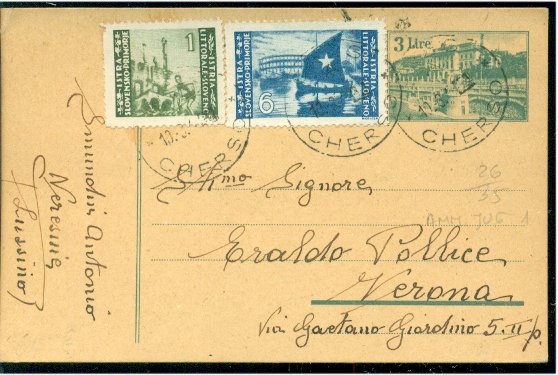 1
ISTRA
SLOVENSKO PRIMORJE
ISTRIA
LITTORALE SLOVENO
6
ISTRA
SLOVENSKO-PRIMORJE
ISTRIA
LITTORALE-SLOVENO
3 Lire
CHERSO
CHERSO
CHERSO
Ill.mo Signore
Eraldo Pollice
Verona
Via Gaetano Giardino 5. II p.
26
35
AMM JUG 1
Smundin Antonio
Neresine
(Lussino)